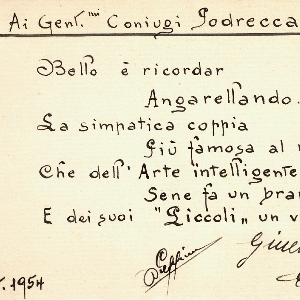 Ai Gent.mi Coniugi Podrecca
Bello è ricordar
Angarellando.
La simpatica coppia
Più famosa al
Che dell' Arte intelligente
Sene fa un
E dei suoi "Piccoli" un
1954